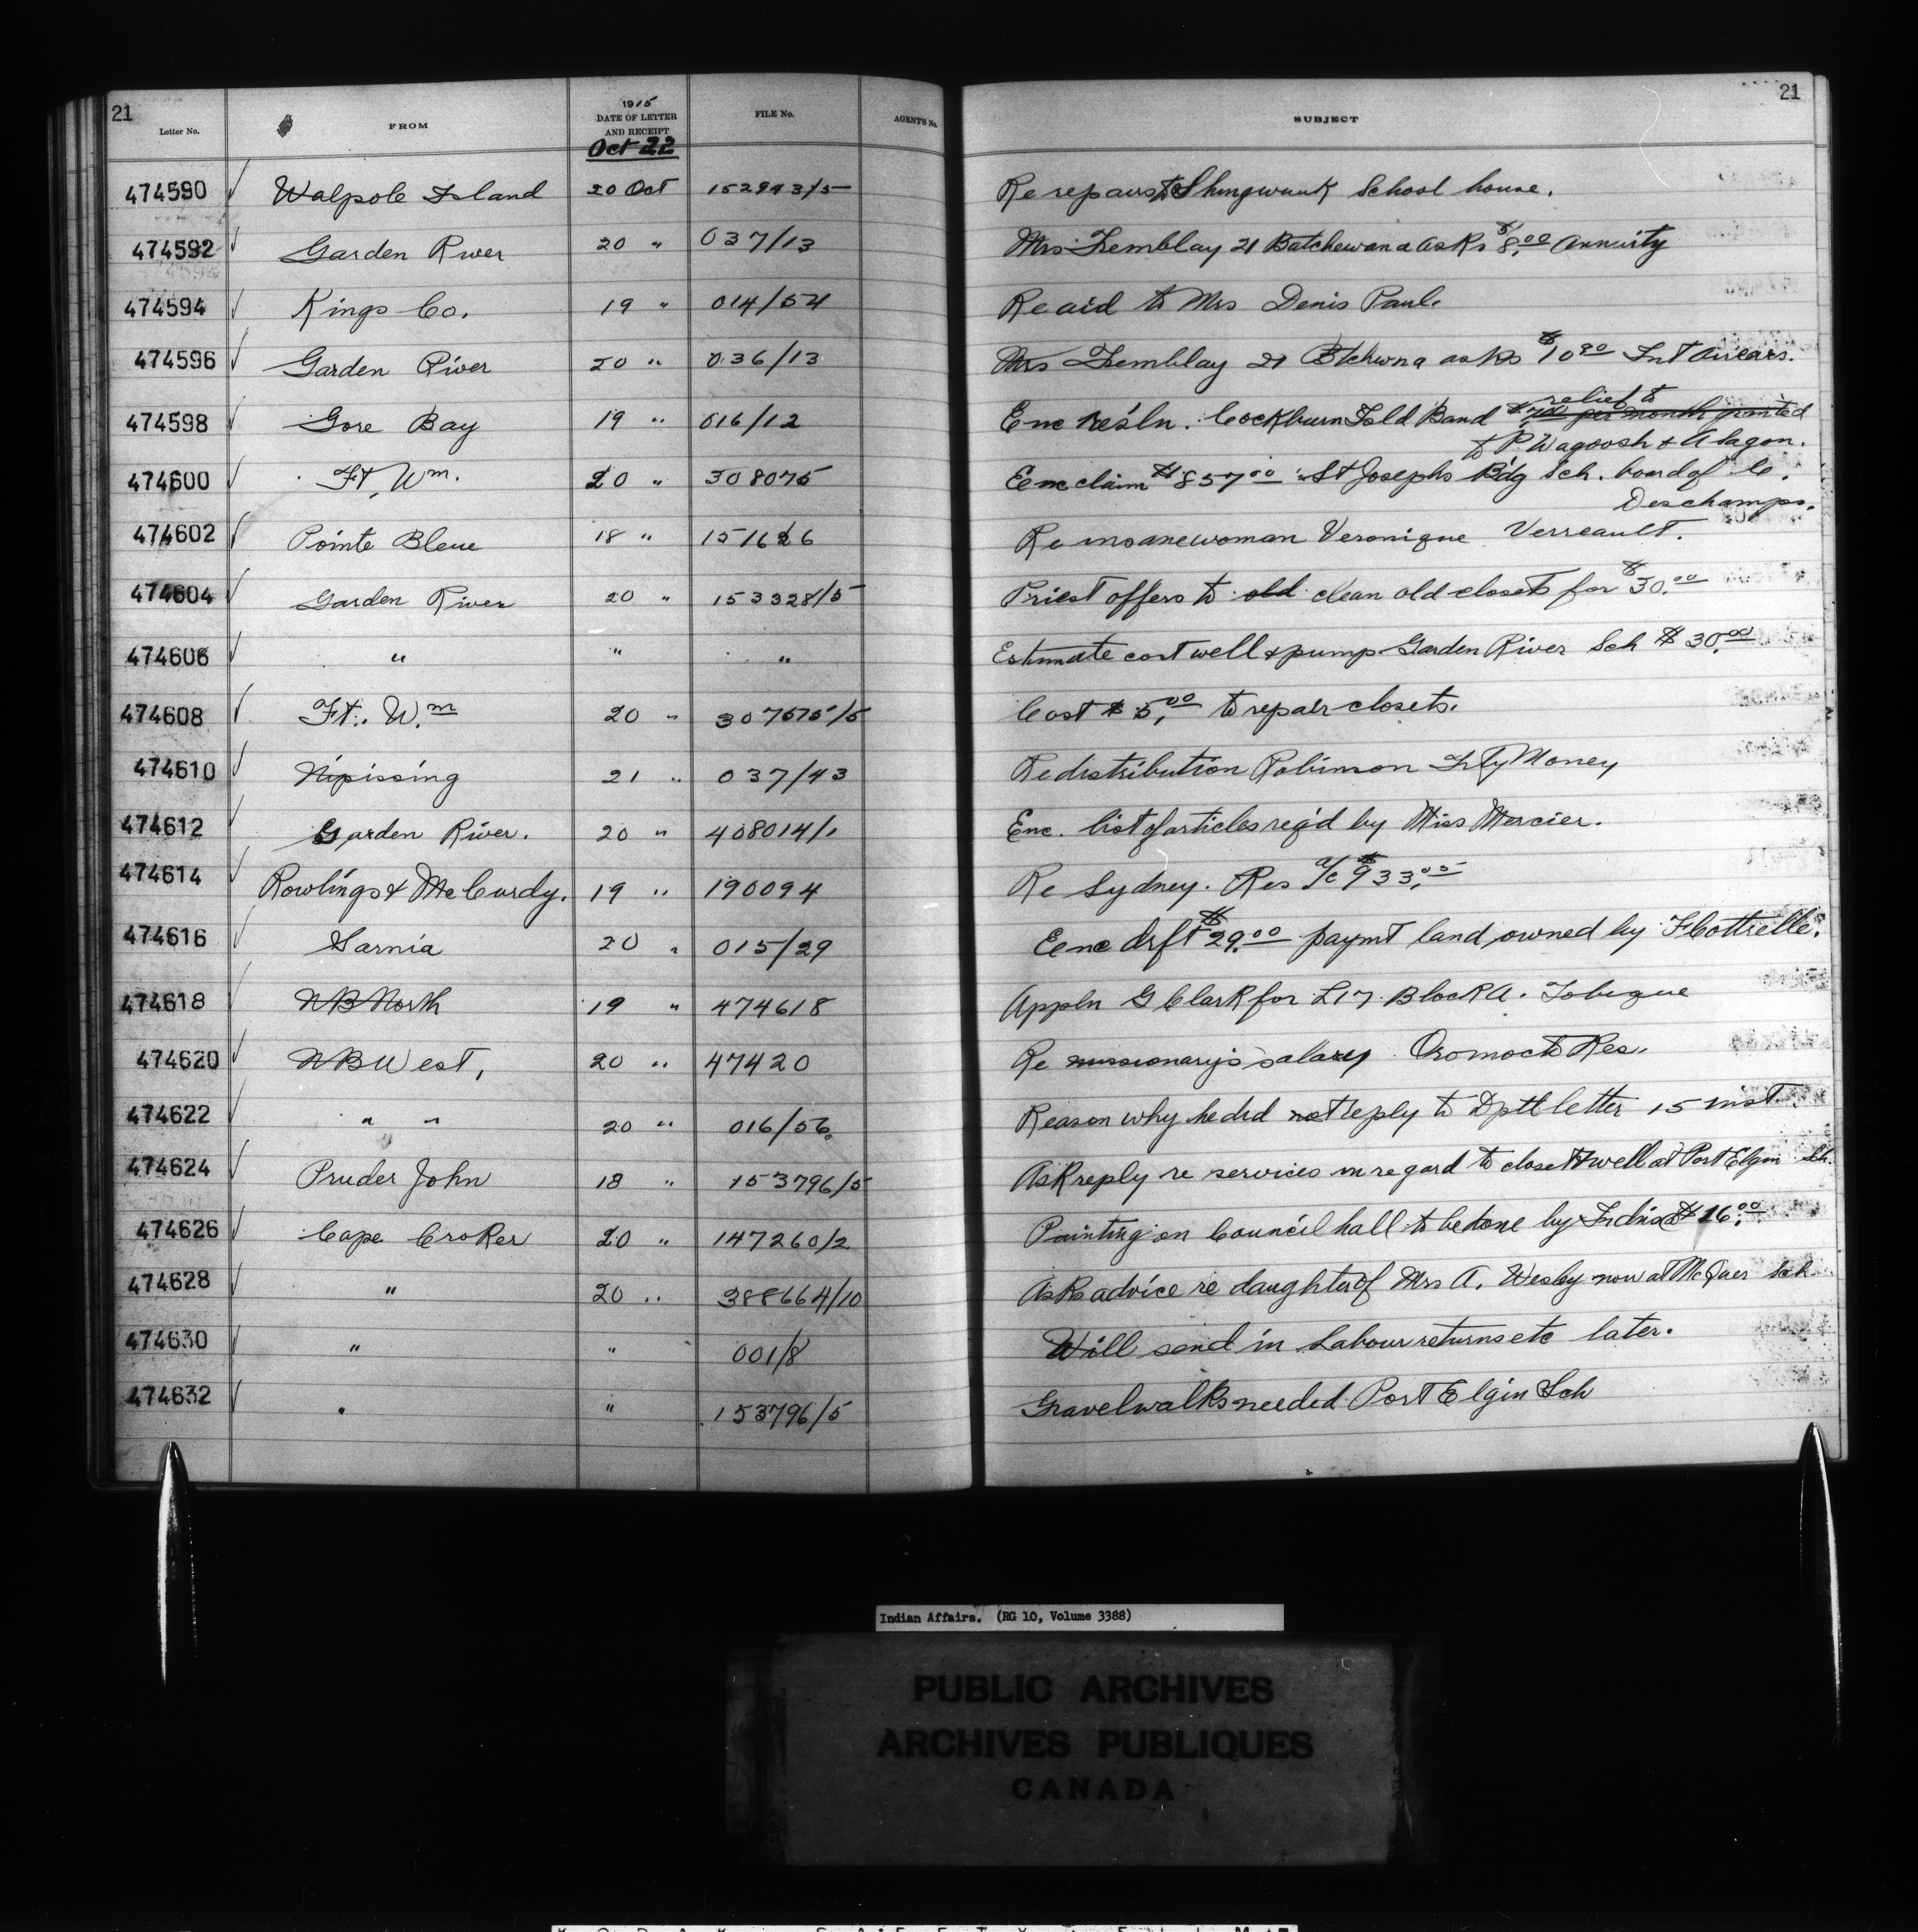 21
Letter No. FROM 1915 DATE OF LETTER AND RECEIPT FILE No. AGENT'S No. SUBJECT 21
Oct 22
474590 Walpole Island 20 Oct 152943/5 Re repairs to Shingwauk School house.
474592 Garden River 20 " 037/13 Mrs Tremblay 21 Batchewana asks $8.00 annuity
474594 Kings Co. 19 " 014/54 Re aid to Mrs Denis Paul.
474596 Garden River 20 " 036/13 Mrs Tremblay 21 Btchwna asks $10 Int arrears.
474598 Gore Bay 19 " 016/12 Enc resln. Cockburn Isld Band relief to
$7.00 per month granted
to P. Wagoosh & A Lagon.
474600 Ft. Wm. 20 " 308075 Enc claim $857.00 St Josephs Bdg Sch. board of Co.
Deschamps.
474602 Pointe Bleue 18 " 151626 Re insane woman Veronique Verreault.
474604 Garden River 20 " 153328/5 Priest offers to old clean old closets for $30.00
474606 " " " Estimate cost well & pump Garden River Sch $30.00
474608 Ft. Wm 20 " 307575/5 Cost $5.00 to repair closets.
474610 Nipissing 21 " 037/43 Re distribution Robinson Trty Money
474612 Garden River. 20 " 408014/1 Enc. list of articles reqd by Miss Mercier.
474614 Rowlings & McCurdy. 19 " 190094 Re Sydney. Res a/c $933.
474616 Sarnia 20 " 015/29 Enc drft $29.00 paymt land owned by F Cottrelle.
474618 NB North 19 " 474618 Appln G Clark for L17 Block A. Tobique
474620 NB West, 20 " 47420 Re missionary's salary Oromocto Res.
474622 " " 20 " 016/56 Reason why he did not reply to Dptl letter 15 inst.
474624 Pruder John 18 " 153796/5 Ask reply re services in regard to closet & well at Port Elgin Sch
474626 Cape Croker 20 " 147260/2 Painting on Council hall to be done by Indns $16.00
474628 " 20 " 388664/10 Asks advice re daughter of Mrs A. Wesley now at Sch
474630 " " 001/8 Will send in Labour returns etc later.
474632 " " 153796/5 Gravel walks needed Port Elgin Sch
Indian Affairs. (RG 10, Volume 3388)
PUBLIC ARCHIVES
ARCHIVES PUBLIQUES
CANADA